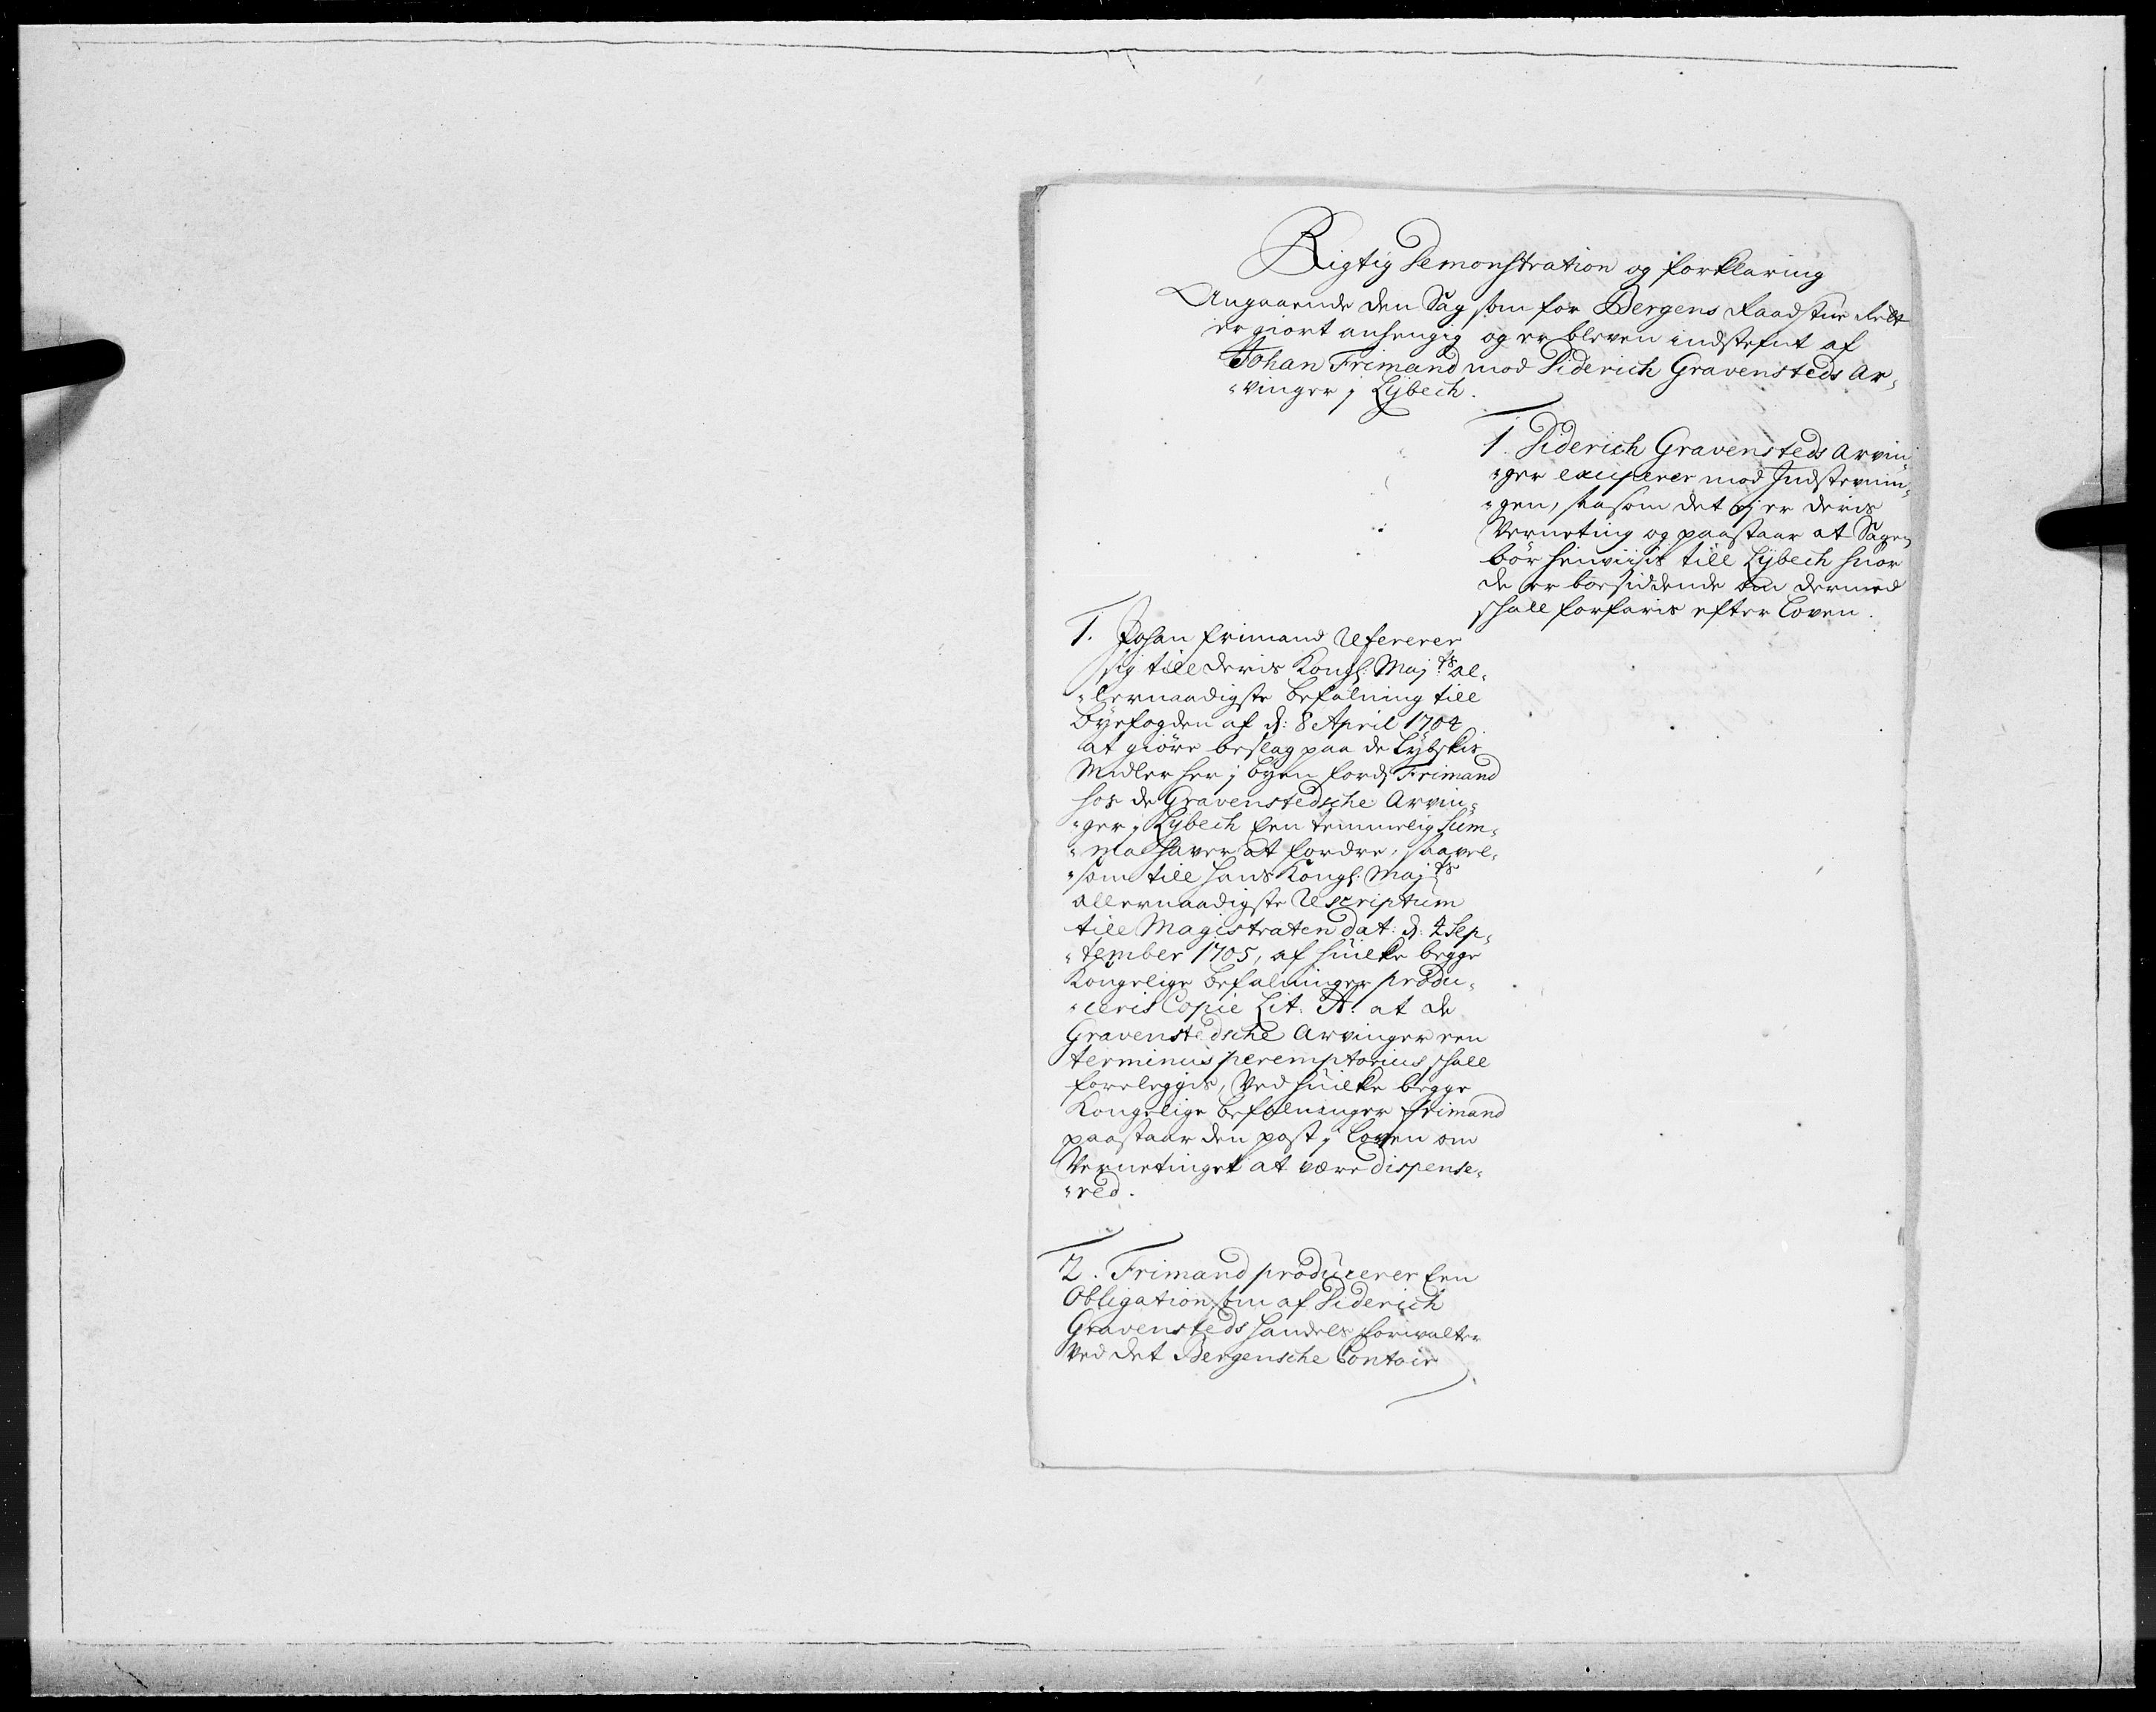 Rigtig Demonstration og forklaring
Angaaende den Sag som for Bergens Raadstue Rett
er giort anhengig og er bleven indstefnt af
Johan Frimand mod Diderich Gravensteds Ar¬
¬vinger j Lÿbech.
1. Diderich Gravensteds Arvin¬
¬ger exciperer mod Indstevnin¬
¬gen, saasom det ej er deris
Verneting og paastaar at Sagen
bör henviisis till Lÿbech huor
de er boesiddende om dermed
skall forfaris efter Loven.
1. Johan Frimand refererer
sig till deris Kongl: Maj:ts al¬
¬lernaadigste befalning till
Byefogden af d: 8 April 1704
at giöre beslag paa de Lybske
Midler her j byen fordj Frimand
hos de Gravenstedsche Arvin¬
¬ger j Lybech een temmelig Sum¬
¬ma haver at fordre, saavel¬
¬som till hans Kongl: Maj:ts
allernaadigste Rescriptum
till Magistraten dat: d: 4 Sep¬
¬tember 1705, af huilke begge
Kongelige befalninger produ¬
¬ceris Copie Lit: A. at de
Gravenstedsche Arvinger een
terminus peremptorius skall
foreleggis, Ved huilke begge
Kongelige befalninger Frimand
paastaar den post j Loven om
Vernetinget at være dispense¬
¬red.
2. Frimand producerer Een
Obligation som af Diderich
Gravensteds Handels forvalter
Ved det Bergensche Contoir